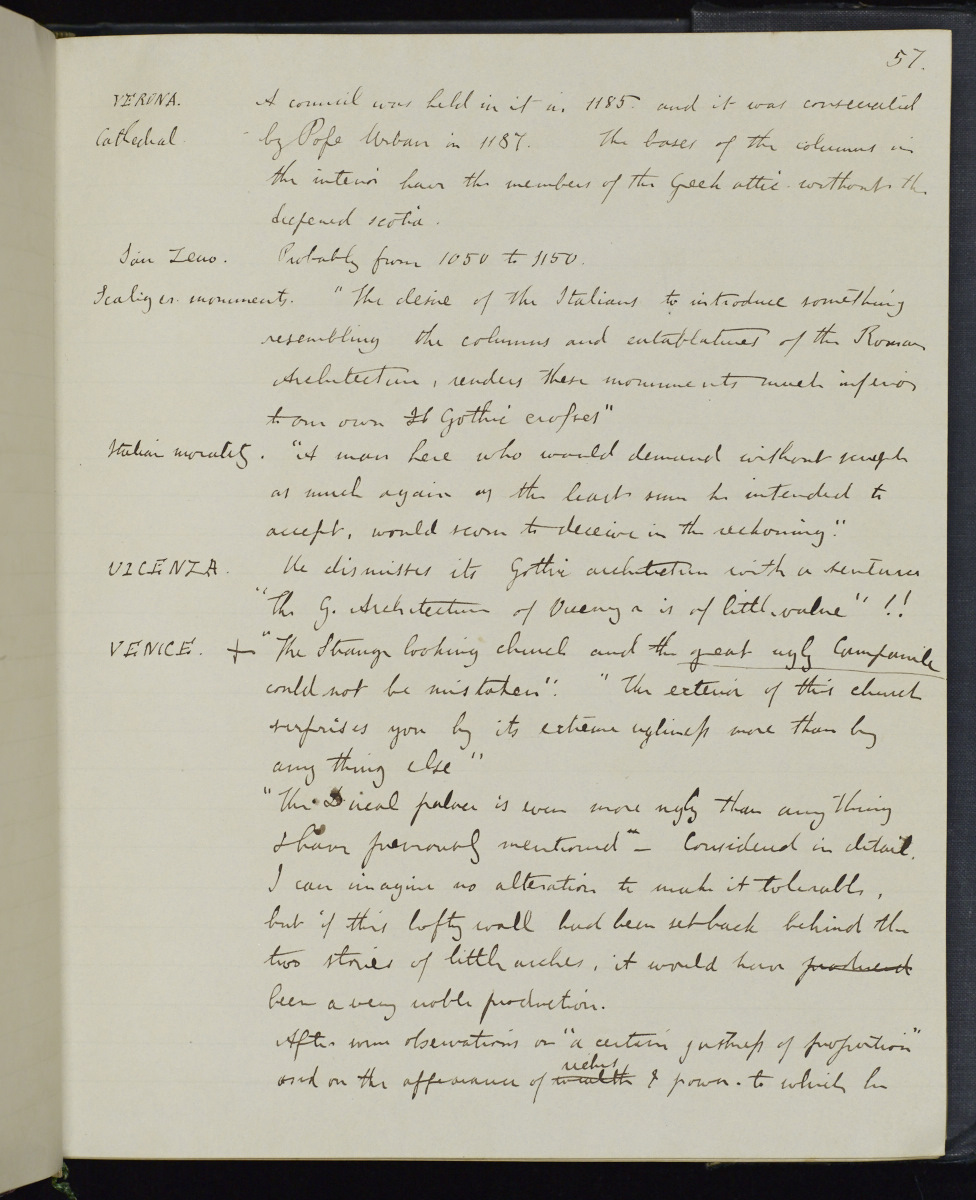 57.
VERONA. A council was held in it in 1185. and it was consecrated
Cathedral. by Pope Urban in 1187. The bases of the columns in
the interior have the members of the Greek attic without the
deepened scotia.
San Zeno. Probably from 1050 to 1150.
Scaliger monuments. "The desire of the Italians to introduce something
resembling the columns and entablatures of the Roman
Architecture, renders these monuments much inferior
to our own Gothic crosses"
Italian morality. "A man here who would demand without scruple
as much again as the least sum he intended to
accept, would scorn to deceive in the reckoning."
VICENZA. He dismisses its Gothic architecture with a sentence
"The G. Architecture of Vicenza is of little value"!!
VENICE. + "The Strange looking church and the great ugly Campanile
could not be mistaken". "The exterior of this church
surprises you by its extreme ugliness more than by
any thing else"
"The Ducal palace is even more ugly than any thing
I have previously mentioned" – Considered in detail.
I can imagine no alteration to make it tolerable,
but if this lofty wall had been set back behind the
two stories of little arches, it would have produced
been a very noble production.
After some observations on "a certain justness of proportion"
and on the appearance of wealth riches & power. to which he